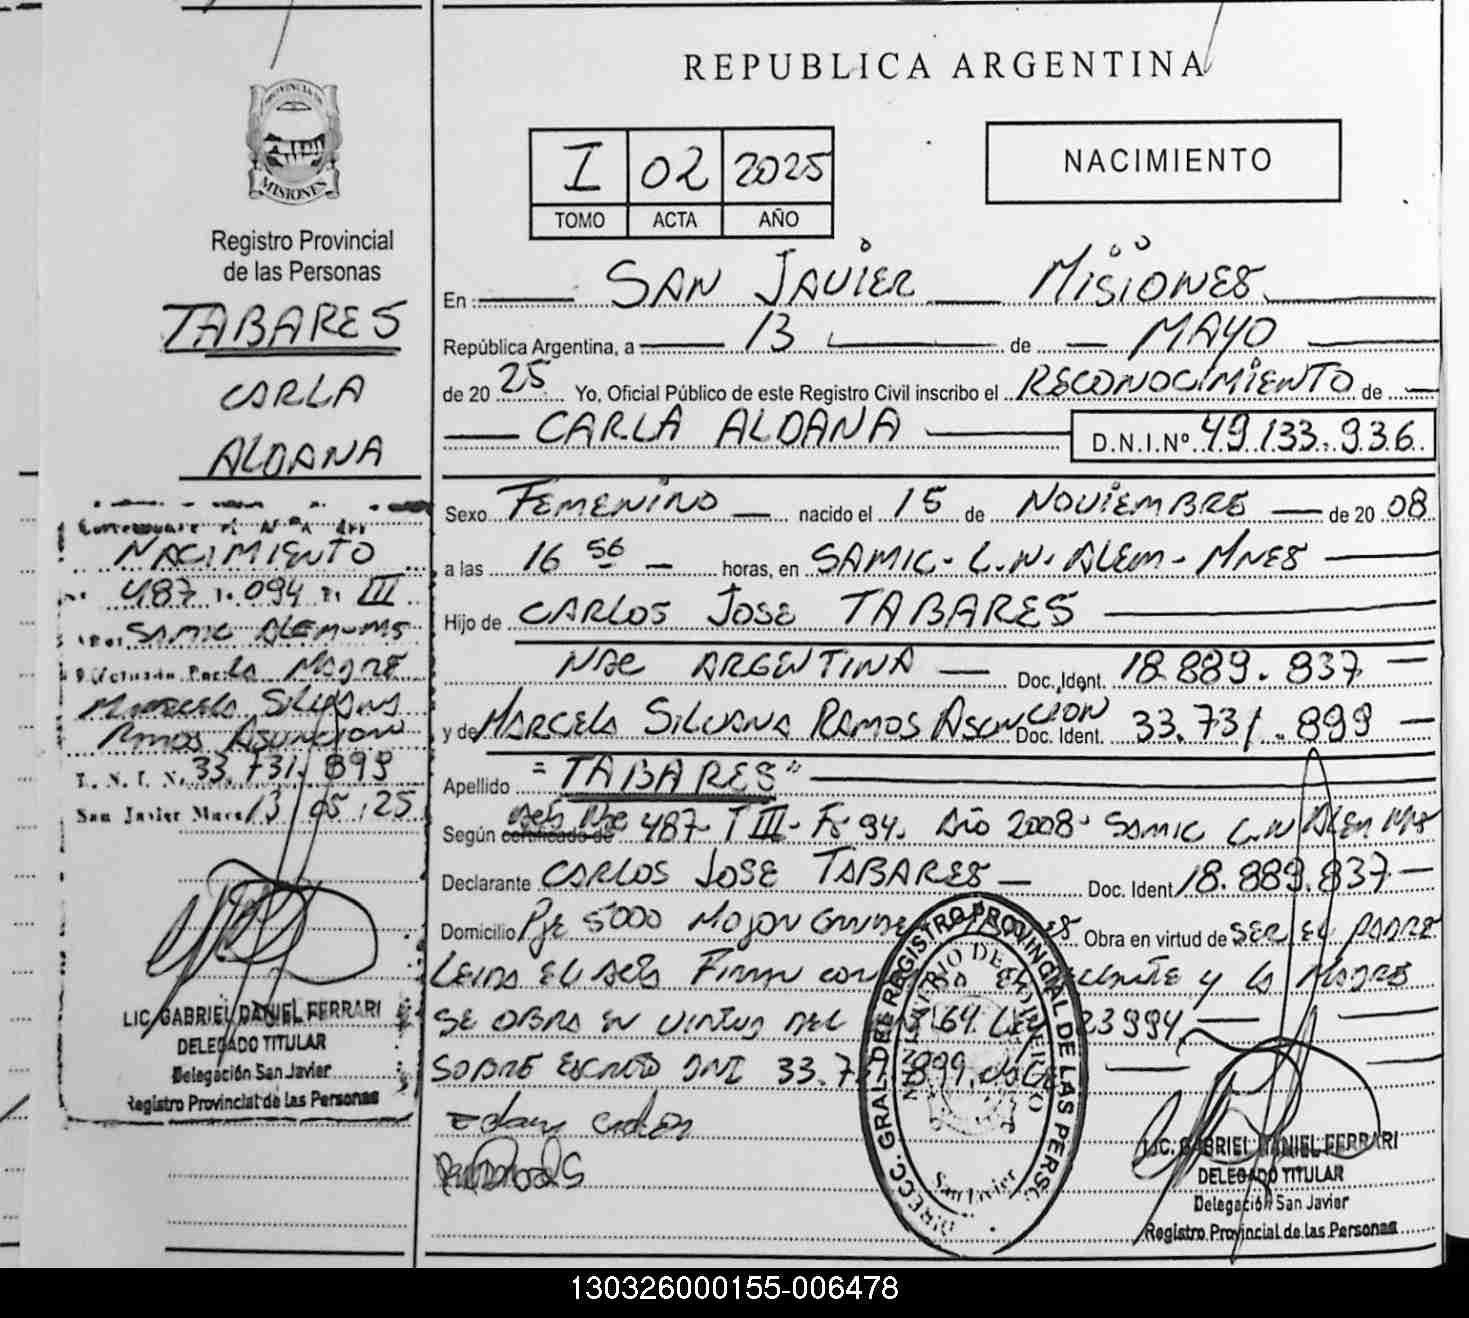 REPUBLICA ARGENTINA
PROVINCIA DE
MISIONES
Registro Provincial
de las Personas
TABARES
CARLA
ALDANA
I 02 2025
TOMO ACTA AÑO
NACIMIENTO
En: SAN JAVIER MISIONES
República Argentina, a 13 de MAYO
de 20 25 Yo, Oficial Público de este Registro Civil inscribo el RECONOCIMIENTO de
CARLA ALDANA D.N.I.Nº 49.133.936
Sexo FEMENINO nacido el 15 de NOVIEMBRE de 20 08
a las 16 56 horas, en SAMIC - L.N. ALEM - MNES
Hijo de CARLOS JOSE TABARES
NAC ARGENTINA Doc. Ident. 18.889.837
y de MARCELA SILVANA RAMOS ASUNCION Doc. Ident. 33.731.899
Apellido "TABARES"
Según certificado de 487- T III- Fº 94. Año 2008- SAMIC L.N ALEM
Declarante CARLOS JOSE TABARES Doc. Ident 18.889.837
Domicilio Pje 5000 MOJON GRANDE Obra en virtud de SER EL PADRE
LEIDA EL ACTA FIRMAN y LA MADRE
SE OBRA EN VIRTUD DEL 64. 23994
SOBRE ESCRITO DNI 33.7 899.
NACIMIENTO
487 094 III
SAMIC ALEM
Efectuado Por: LA MADRE
MARCELA SILVANA
RAMOS ASUNCION
D. N. I. N. 33.731.899
San Javier Mnes 13 05 25
LIC. GABRIEL DANIEL FERRARI
DELEGADO TITULAR
Delegación San Javier
Registro Provincial de las Personas
DIRECC. GRAL. DEL REGISTRO PROVINCIAL DE LAS PERS.
MINISTERIO DE GOBIERNO
San Javier
LIC. GABRIEL DANIEL FERRARI
DELEGADO TITULAR
Delegación San Javier
Registro Provincial de las Personas
130326000155-006478